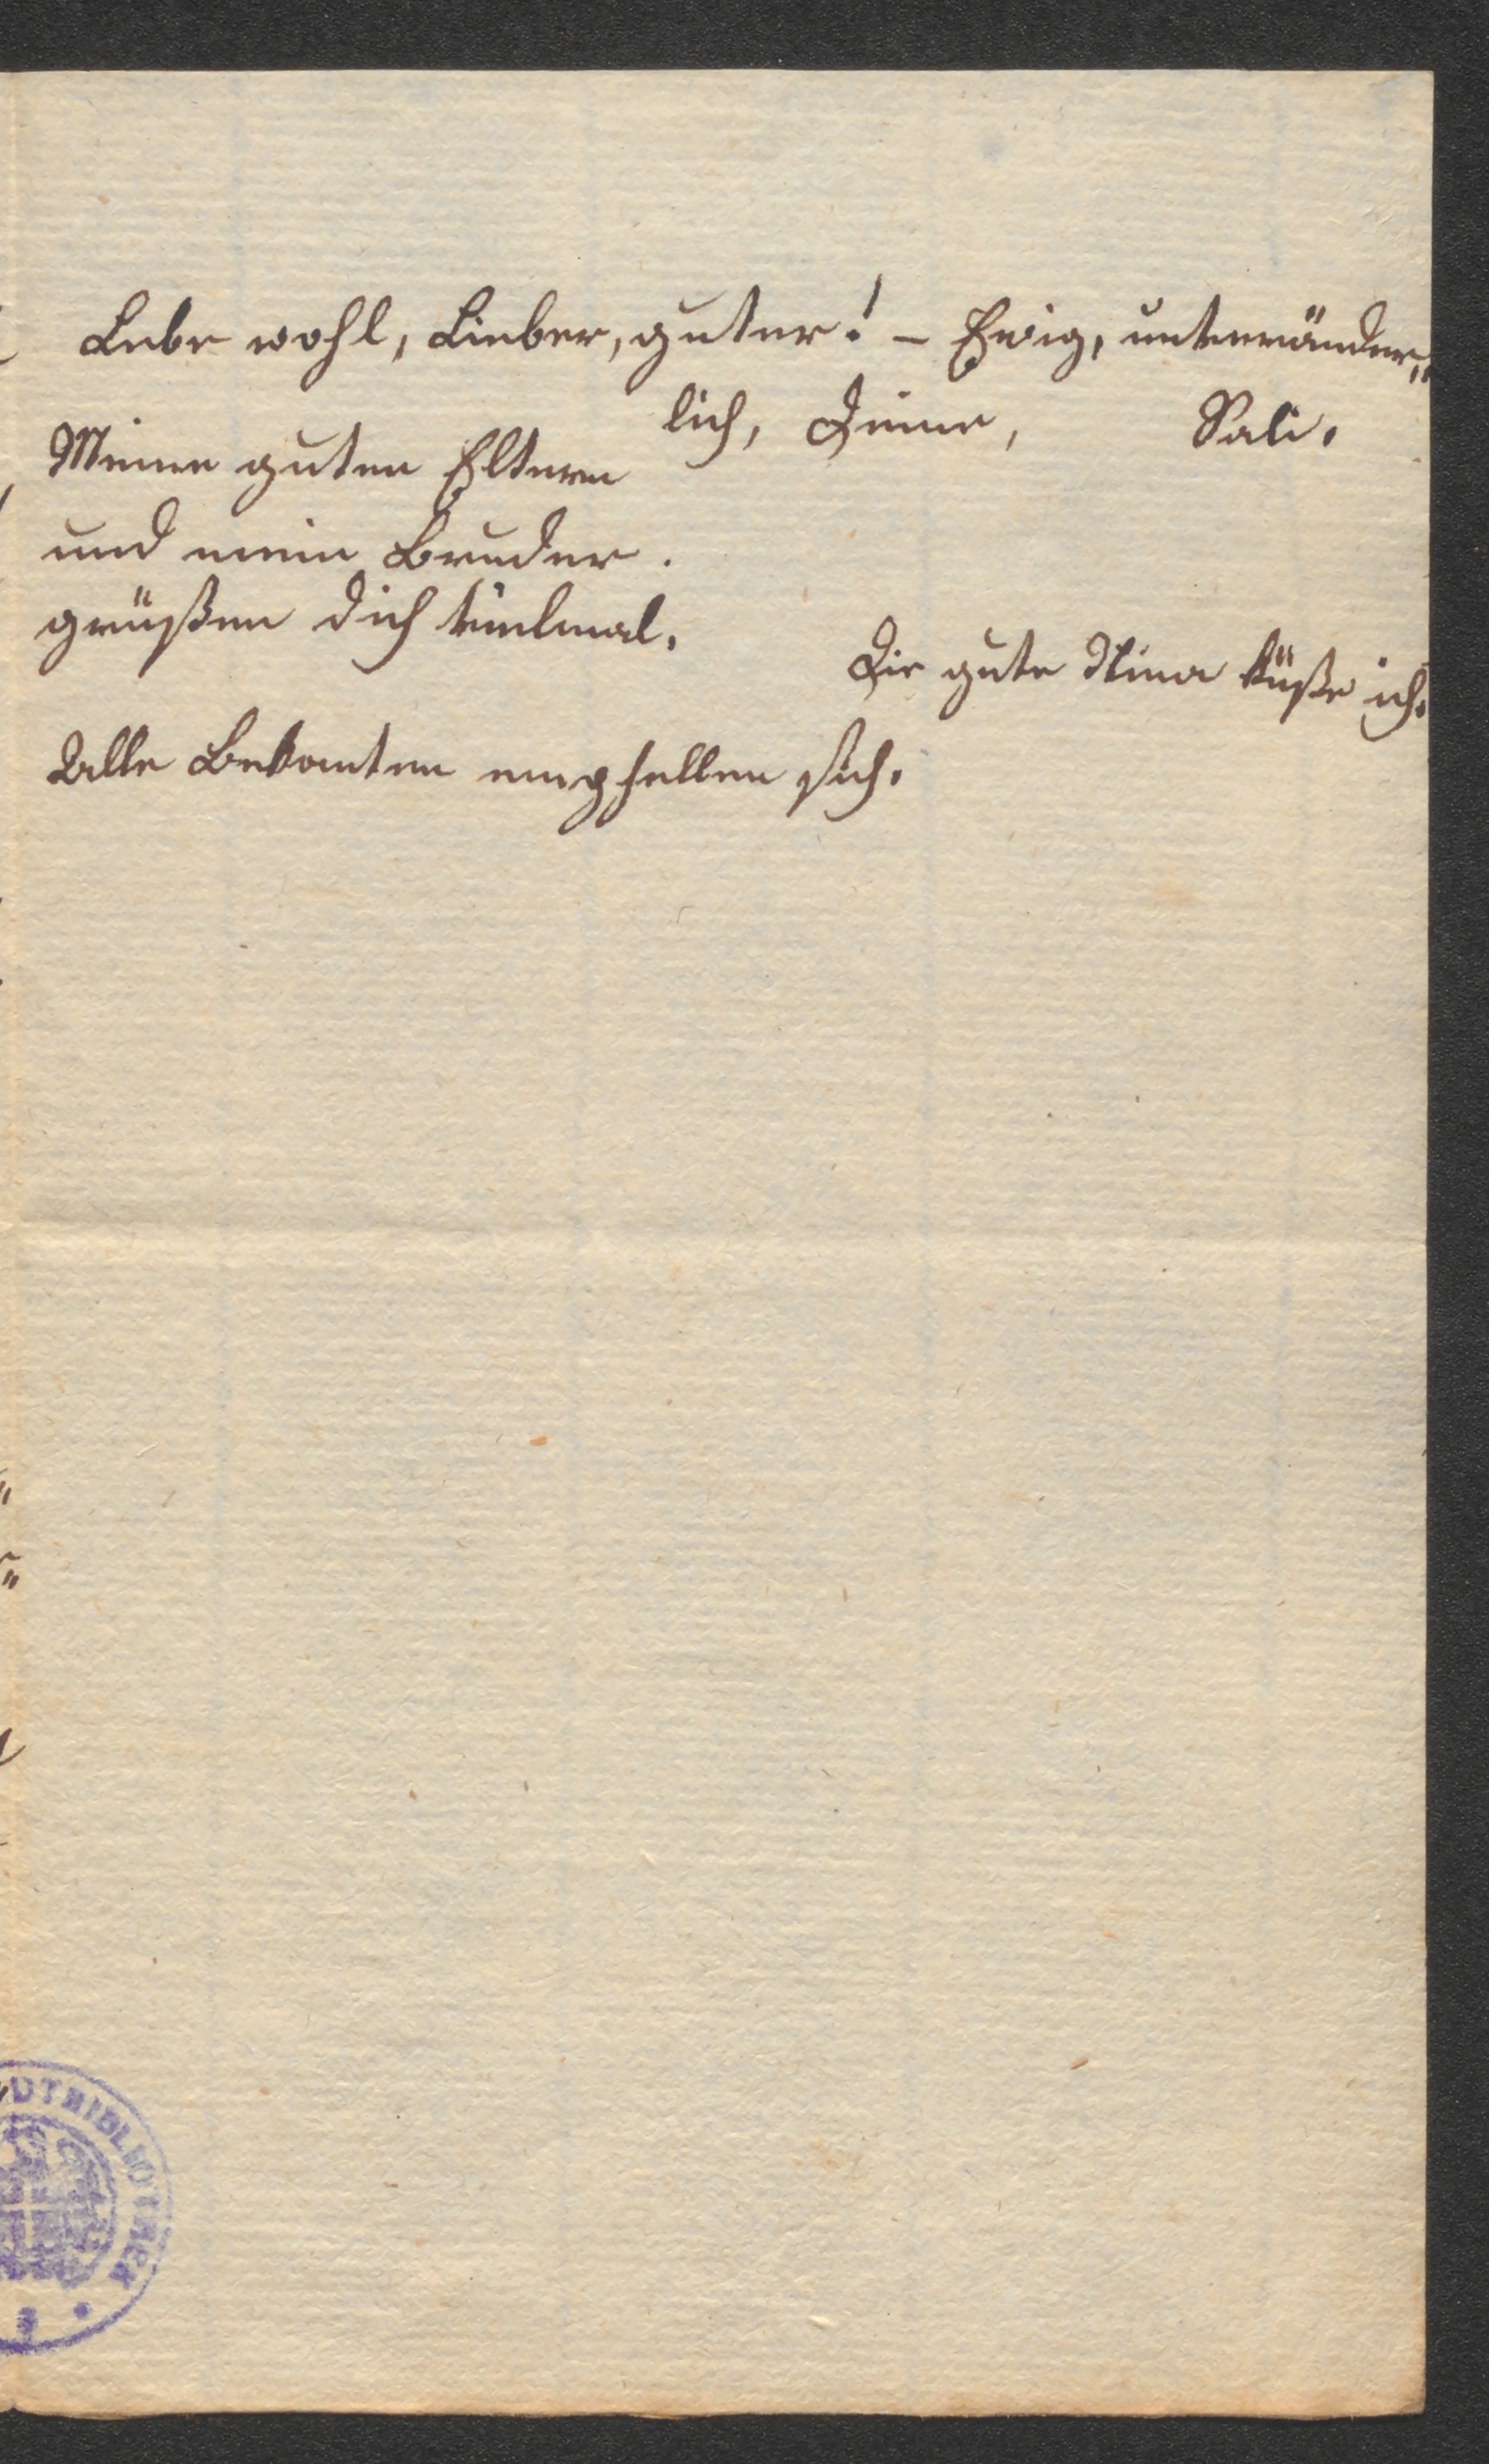 Lebe wohl, Lieber, guter! – Ewig, unveränder„
lich, Deine, Sali.
Meine guten Eltern
und mein Bruder.
grüßen dich vielmal.
Die gute Nina küße ich.
Alle Bekanten empfellen sich.